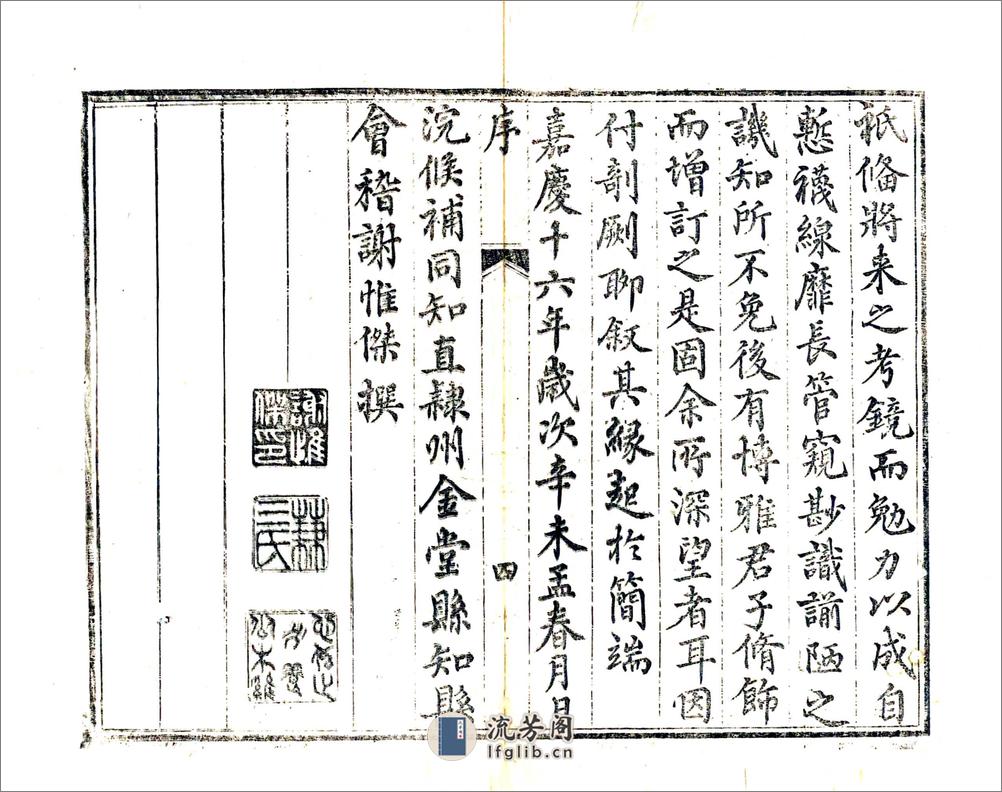 祇俻將来之考鏡而勉力以成自
慙襪線靡長管窺尠識謭陋之
譏知所不免後有博雅君子脩飾
而增訂之是固余所深望者耳因
付剞劂聊叙其縁起於簡端
嘉慶十六年歲次辛未孟春月日
序
四
浣候補同知直隸州金堂縣知縣
會稽謝惟傑撰
謝惟傑印
流芳阁
lfglib.cn